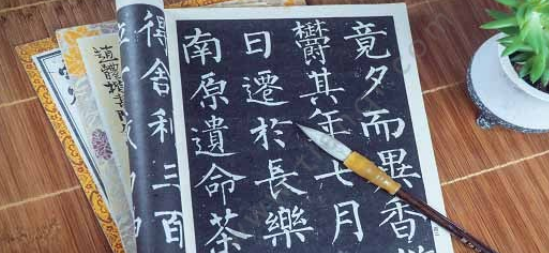 竟夕而異香
鬱其年七月
日遷於長樂
南原遺命茶
得舍利三百